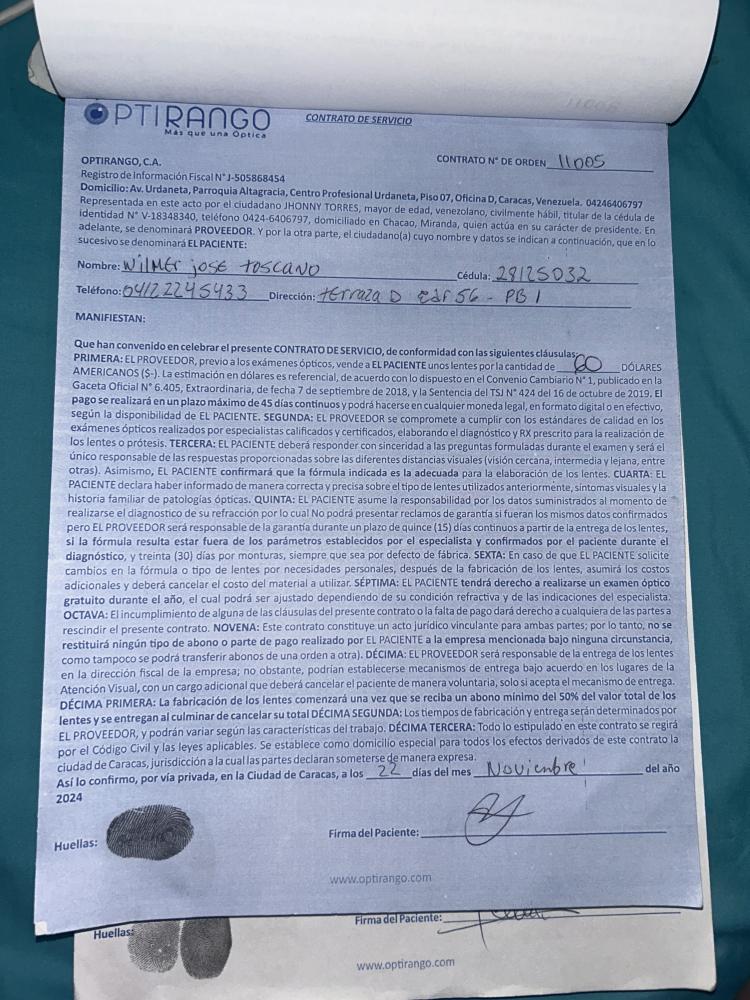 OPTIRANGO
Más que una Óptica
CONTRATO DE SERVICIO
OPTIRANGO, C.A.
CONTRATO N° DE ORDEN 11005
Registro de Información Fiscal N° J-505868454
Domicilio: Av. Urdaneta, Parroquia Altagracia, Centro Profesional Urdaneta, Piso 07, Oficina D, Caracas, Venezuela. 04246406797
Representada en este acto por el ciudadano JHONNY TORRES, mayor de edad, venezolano, civilmente hábil, titular de la cédula de
identidad N° V-18348340, teléfono 0424-6406797, domiciliado en Chacao, Miranda, quien actúa en su carácter de presidente. En
adelante, se denominará PROVEEDOR. Y por la otra parte, el ciudadano(a) cuyo nombre y datos se indican a continuación, que en lo
sucesivo se denominará EL PACIENTE:
Nombre: Wilmer jose toscano Cédula: 28125032
Teléfono: 04122245433 Dirección: terraza D edf 56 - PB 1
MANIFIESTAN:
Que han convenido en celebrar el presente CONTRATO DE SERVICIO, de conformidad con las siguientes cláusulas:
PRIMERA: EL PROVEEDOR, previo a los exámenes ópticos, vende a EL PACIENTE unos lentes por la cantidad de 60 DÓLARES
AMERICANOS ($-). La estimación en dólares es referencial, de acuerdo con lo dispuesto en el Convenio Cambiario N° 1, publicado en la
Gaceta Oficial N° 6.405, Extraordinaria, de fecha 7 de septiembre de 2018, y la Sentencia del TSJ N° 424 del 16 de octubre de 2019. El
pago se realizará en un plazo máximo de 45 días continuos y podrá hacerse en cualquier moneda legal, en formato digital o en efectivo,
según la disponibilidad de EL PACIENTE. SEGUNDA: EL PROVEEDOR se compromete a cumplir con los estándares de calidad en los
exámenes ópticos realizados por especialistas calificados y certificados, elaborando el diagnóstico y RX prescrito para la realización de
los lentes o prótesis. TERCERA: EL PACIENTE deberá responder con sinceridad a las preguntas formuladas durante el examen y será el
único responsable de las respuestas proporcionadas sobre las diferentes distancias visuales (visión cercana, intermedia y lejana, entre
otras). Asimismo, EL PACIENTE confirmará que la fórmula indicada es la adecuada para la elaboración de los lentes. CUARTA: EL
PACIENTE declara haber informado de manera correcta y precisa sobre el tipo de lentes utilizados anteriormente, síntomas visuales y la
historia familiar de patologías ópticas. QUINTA: EL PACIENTE asume la responsabilidad por los datos suministrados al momento de
realizarse el diagnostico de su refracción por lo cual No podrá presentar reclamos de garantía si fueran los mismos datos confirmados
pero EL PROVEEDOR será responsable de la garantía durante un plazo de quince (15) días continuos a partir de la entrega de los lentes,
si la fórmula resulta estar fuera de los parámetros establecidos por el especialista y confirmados por el paciente durante el
diagnóstico, y treinta (30) días por monturas, siempre que sea por defecto de fábrica. SEXTA: En caso de que EL PACIENTE solicite
cambios en la fórmula o tipo de lentes por necesidades personales, después de la fabricación de los lentes, asumirá los costos
adicionales y deberá cancelar el costo del material a utilizar. SÉPTIMA: EL PACIENTE tendrá derecho a realizarse un examen óptico
gratuito durante el año, el cual podrá ser ajustado dependiendo de su condición refractiva y de las indicaciones del especialista.
OCTAVA: El incumplimiento de alguna de las cláusulas del presente contrato o la falta de pago dará derecho a cualquiera de las partes a
rescindir el presente contrato. NOVENA: Este contrato constituye un acto jurídico vinculante para ambas partes; por lo tanto, no se
restituirá ningún tipo de abono o parte de pago realizado por EL PACIENTE a la empresa mencionada bajo ninguna circunstancia,
como tampoco se podrá transferir abonos de una orden a otra). DÉCIMA: EL PROVEEDOR será responsable de la entrega de los lentes
en la dirección fiscal de la empresa; no obstante, podrían establecerse mecanismos de entrega bajo acuerdo en los lugares de la
Atención Visual, con un cargo adicional que deberá cancelar el paciente de manera voluntaria, solo si acepta el mecanismo de entrega.
DÉCIMA PRIMERA: La fabricación de los lentes comenzará una vez que se reciba un abono mínimo del 50% del valor total de los
lentes y se entregan al culminar de cancelar su total DÉCIMA SEGUNDA: Los tiempos de fabricación y entrega serán determinados por
EL PROVEEDOR, y podrán variar según las características del trabajo. DÉCIMA TERCERA: Todo lo estipulado en este contrato se regirá
por el Código Civil y las leyes aplicables. Se establece como domicilio especial para todos los efectos derivados de este contrato la
ciudad de Caracas, jurisdicción a la cual las partes declaran someterse de manera expresa.
Así lo confirmo, por vía privada, en la Ciudad de Caracas, a los 22 días del mes Noviembre del año
2024
Huellas:
Firma del Paciente:
www.optirango.com
Firma del Paciente:
Huellas:
www.optirango.com